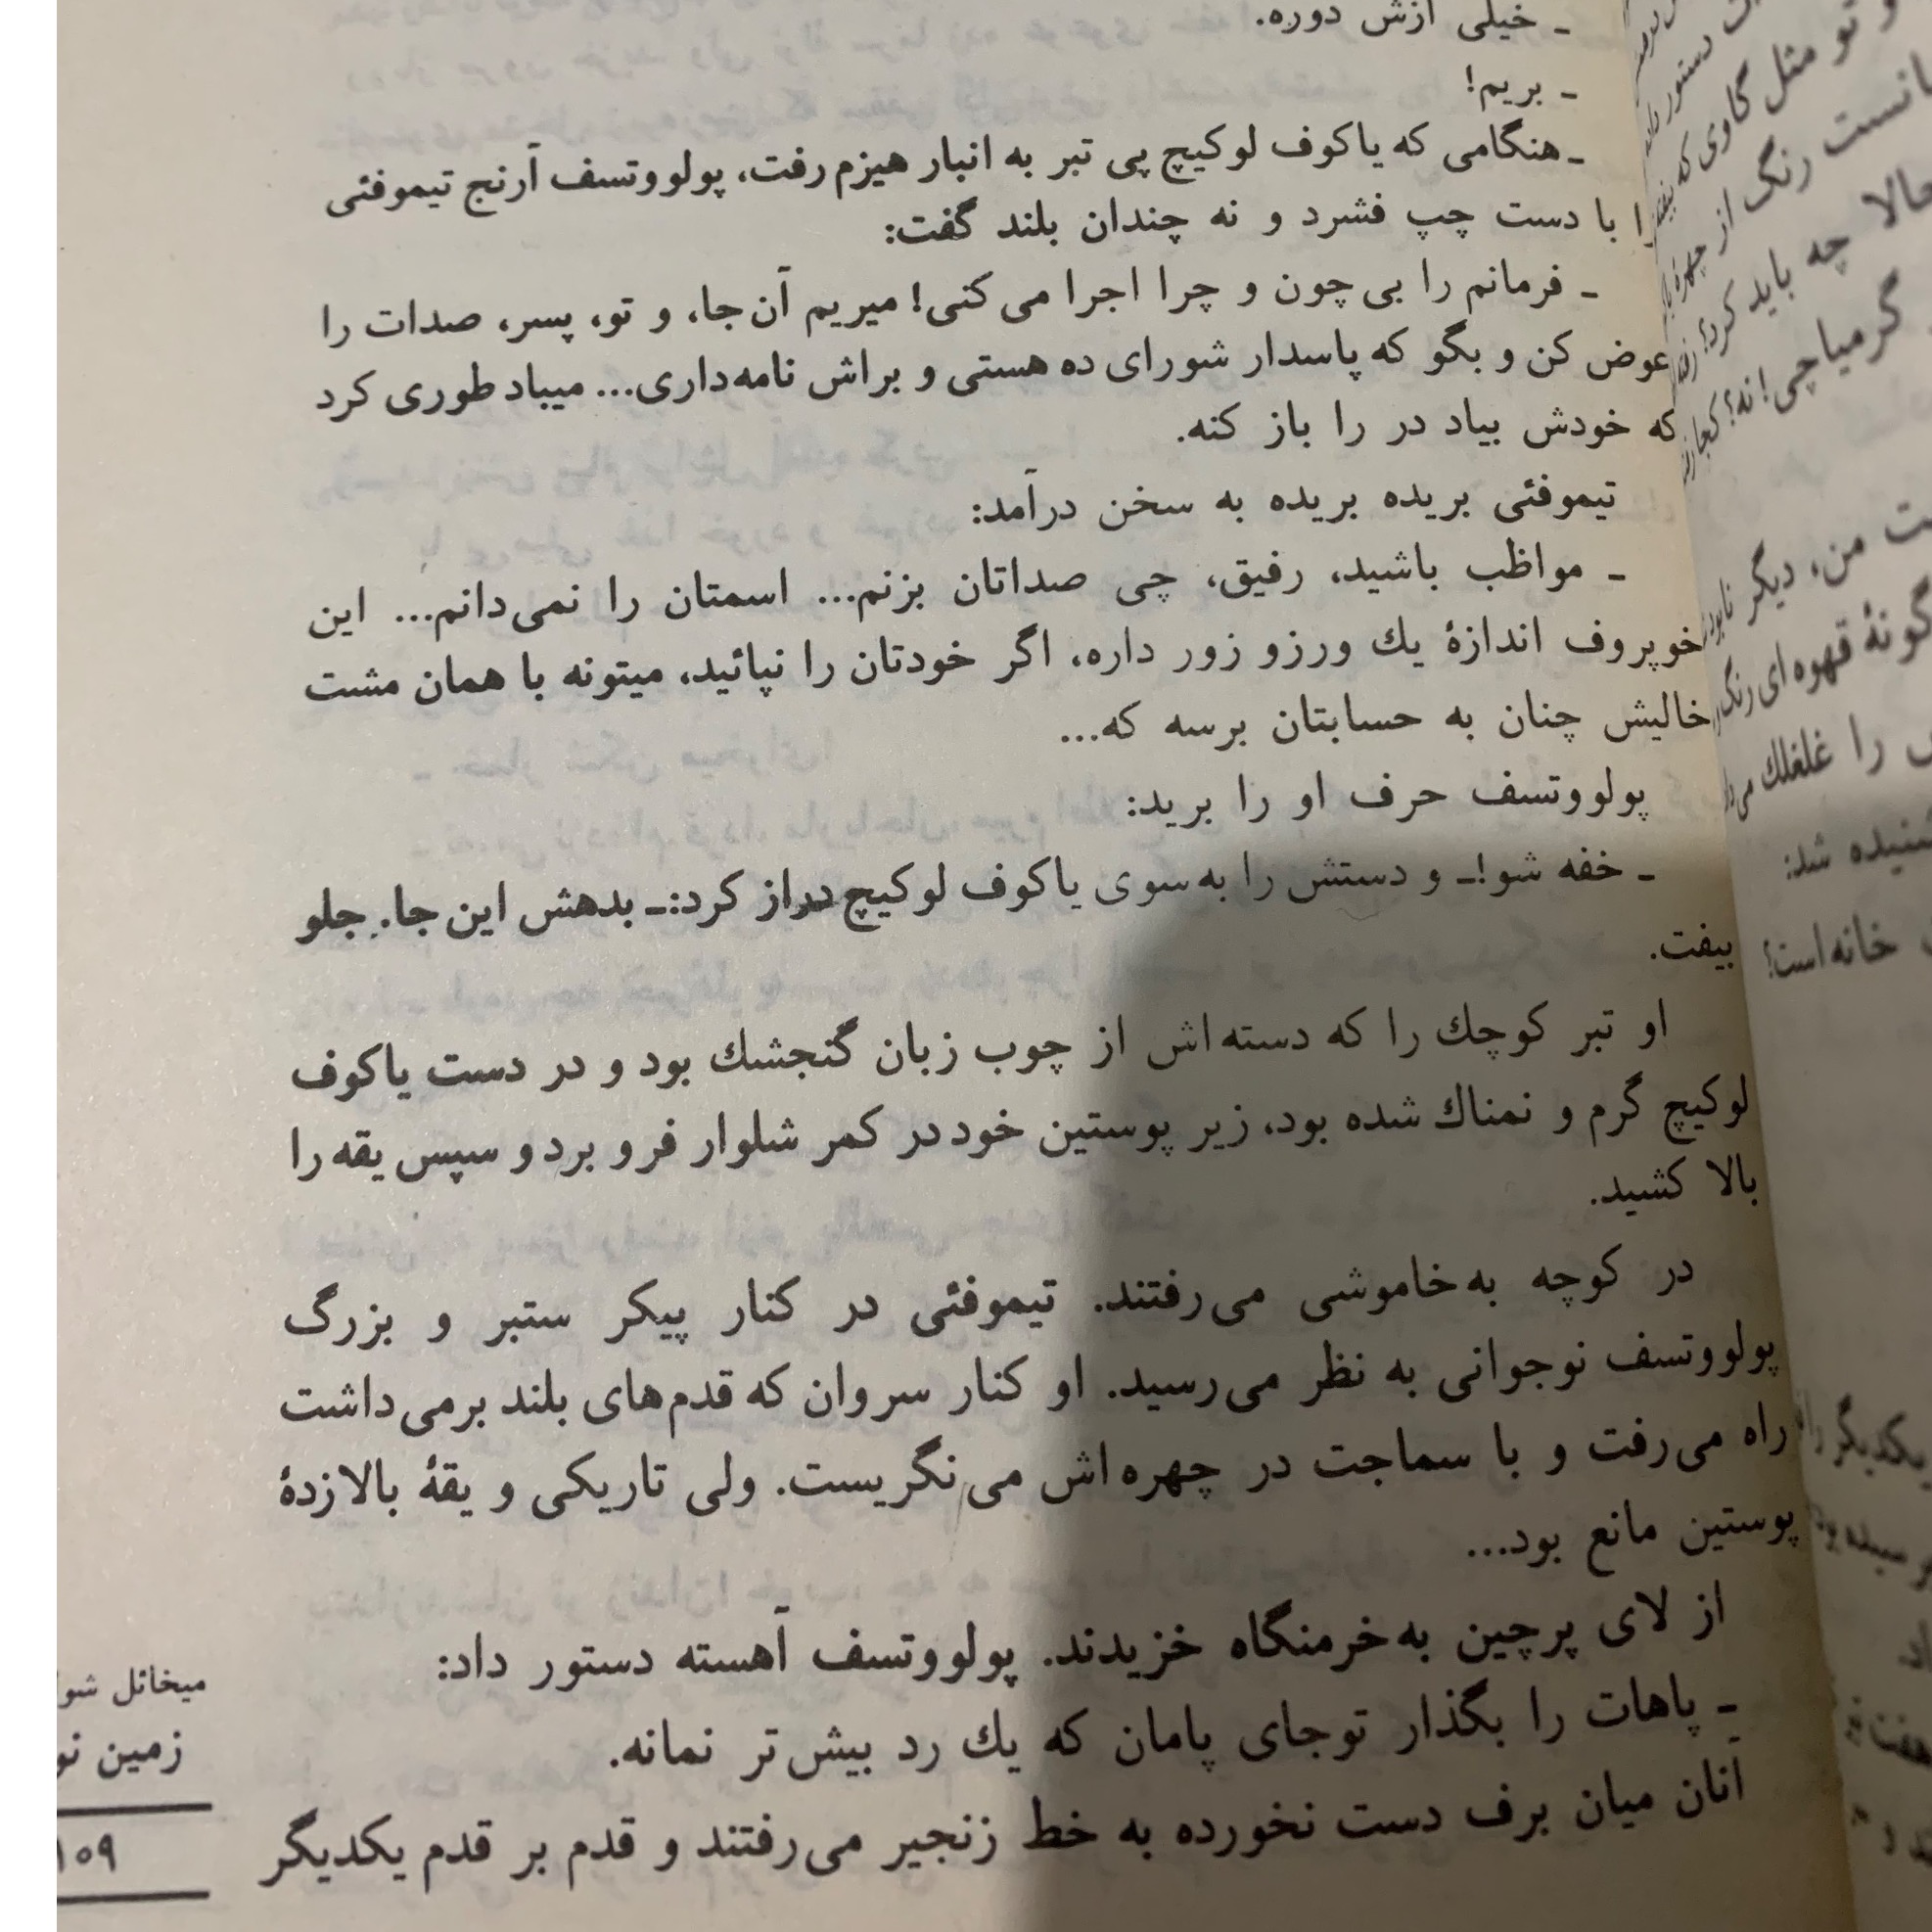 ـ خیلی ازش دوره.
ـ بریم!
ـ هنگامی که یاکوف لوکیچ پی تبر به انبار هیزم رفت، پولووتسف آرنج تیموفئی
را با دست چپ فشرد و نه چندان بلند گفت:
ـ فرمانم را بی‌چون و چرا اجرا می‌کنی! میریم آن‌جا، و تو، پسر، صدات را
عوض کن و بگو که پاسدار شورای ده هستی و براش نامه‌داری... میباد طوری کرد
که خودش بیاد در را باز کنه.
تیموفئی بریده بریده به سخن درآمد:
ـ مواظب باشید، رفیق، چی صداتان بزنم... اسمتان را نمی‌دانم... این
خوپروف اندازهٔ یك ورزو زور داره، اگر خودتان را نپائید، میتونه با همان مشت
خالیش چنان به حسابتان برسه که...
پولووتسف حرف او را برید:
ـ خفه شو!ـ و دستش را به‌سوی یاکوف لوکیچ دراز کرد:ـ بدهش این جا. جلو
بیفت.
او تبر کوچك را که دسته‌اش از چوب زبان گنجشك بود و در دست یاکوف
لوکیچ گرم و نمناك شده بود، زیر پوستین خود در کمر شلوار فرو برد و سپس یقه را
بالا کشید.
در کوچه به‌خاموشی می‌رفتند. تیموفئی در کنار پیکر ستبر و بزرگ
پولووتسف نوجوانی به نظر می‌رسید. او کنار سروان که قدم‌های بلند برمی‌داشت
راه می‌رفت و با سماجت در چهره‌اش می‌نگریست. ولی تاریکی و یقهٔ بالازدهٔ
پوستین مانع بود...
از لای پرچین به‌خرمنگاه خزیدند. پولووتسف آهسته دستور داد:
ـ پاهات را بگذار توجای پامان که یك رد بیش‌تر نمانه.
آنان میان برف دست نخورده به خط زنجیر می‌رفتند و قدم بر قدم یکدیگر
میخائل شو
زمین نو
۱۵۹
و تو مثل گاوی که
رنگ از چهرهٔ
حالا چه باید کرد؟
گرمیاچی! نه؟
من، دیگر
گونهٔ قهوه‌ای رنگ
را غلغلك
شنیده شد:
خانه است؟
یکدیگر